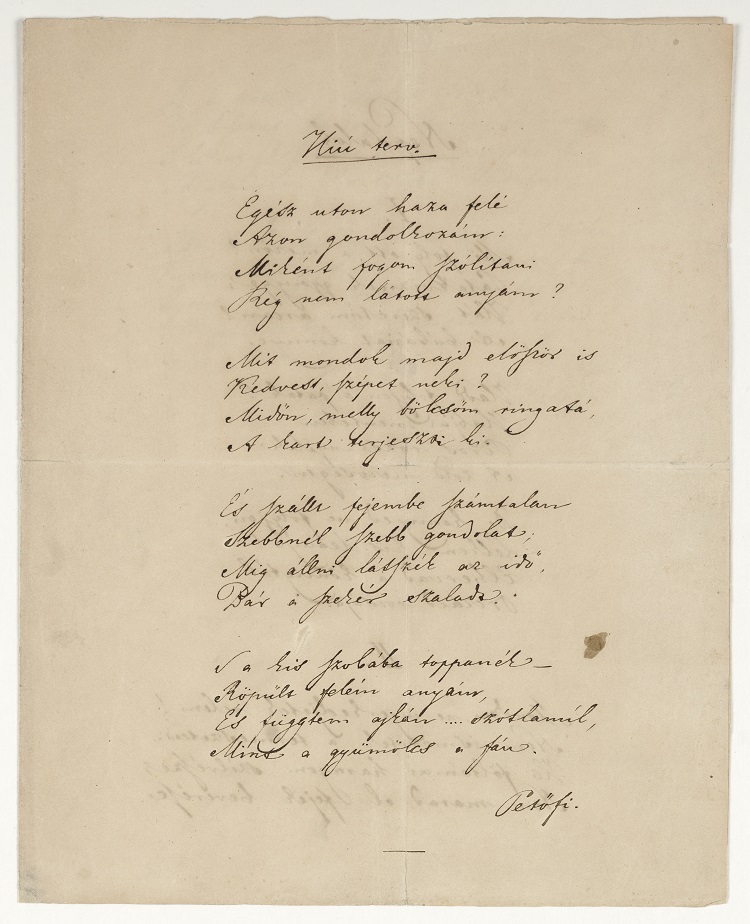 Hiú terv.
Egész uton haza felé
Azon gondolkozám:
Miként fogom szólitani
Rég nem látott anyám?
Mit mondok majd először is
Kedvest, szépet neki?
Midőn, melly bölcsőm ringatá,
A kart terjeszti ki.
És szállt fejembe számtalan
Szebbnél szebb gondolat;
Mig állni látszék az idő,
Bár a szekér szaladt.
S a kis szobába toppanék –
Röpült felém anyám,
És függtem ajkán .... szótlanúl,
Mint a gyümölcs a fán.
Petőfi.